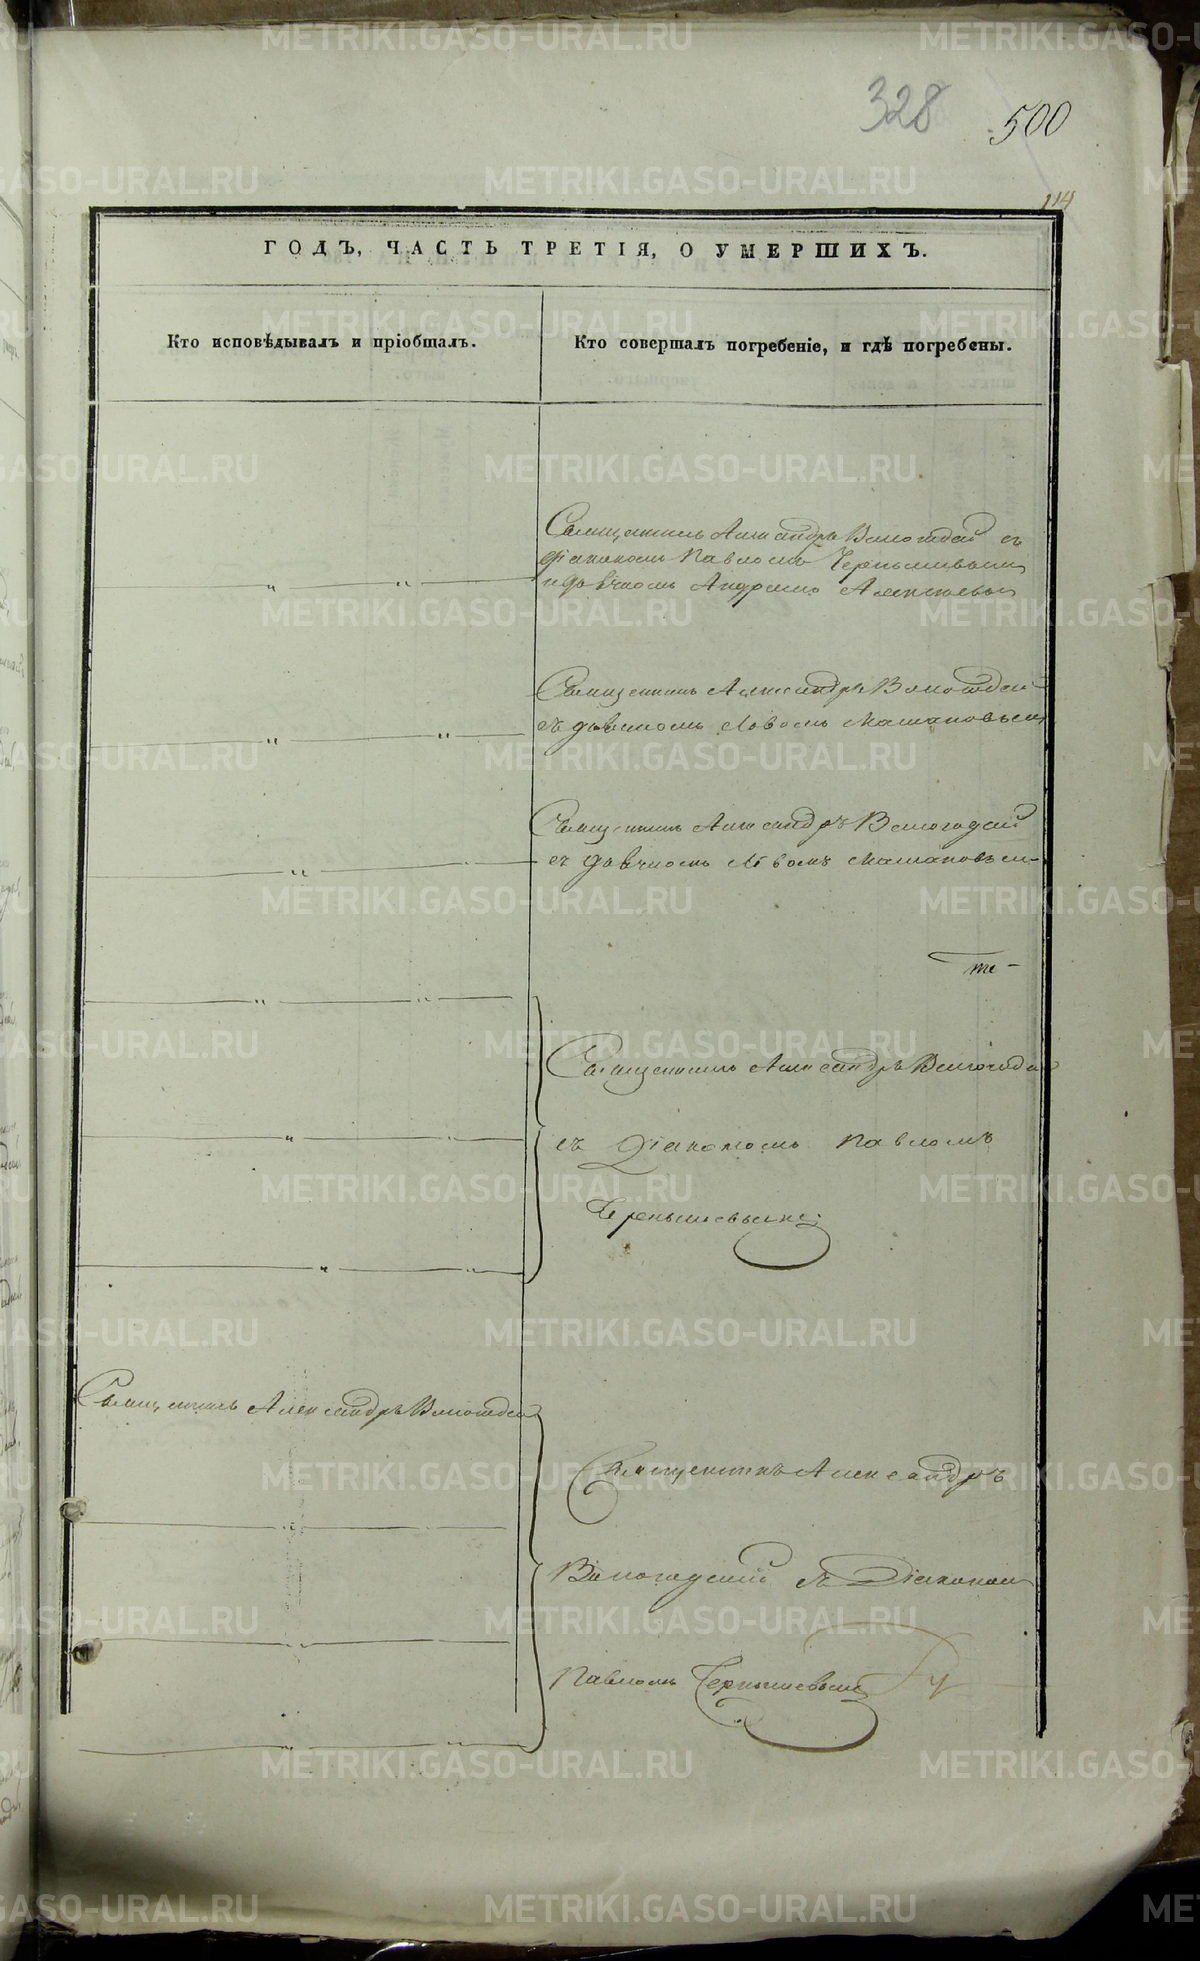 328
500
114
ГОДЪ, ЧАСТЬ ТРЕТІЯ, О УМЕРШИХЪ.
Кто исповѣдывалъ и пріобщалъ.
Кто совершалъ погребеніе, и гдѣ погребены.
Священникъ Александръ Вологодскій съ
Діакономъ Павломъ Чернышевымъ
и дьячкомъ Андреемъ Алексѣевымъ
Священникъ Александръ Вологодскій
съ дьячкомъ Львомъ
Священникъ Александръ Вологодскій
съ дьячкомъ Львомъ
Священникъ Александръ Вологодскій
съ Діакономъ Павломъ
Чернышевымъ
Священникъ Александръ Вологодскій
Священникъ Александръ
Вологодскій съ Діакономъ
Павломъ Чернышевымъ
METRIKI.GASO-URAL.RU